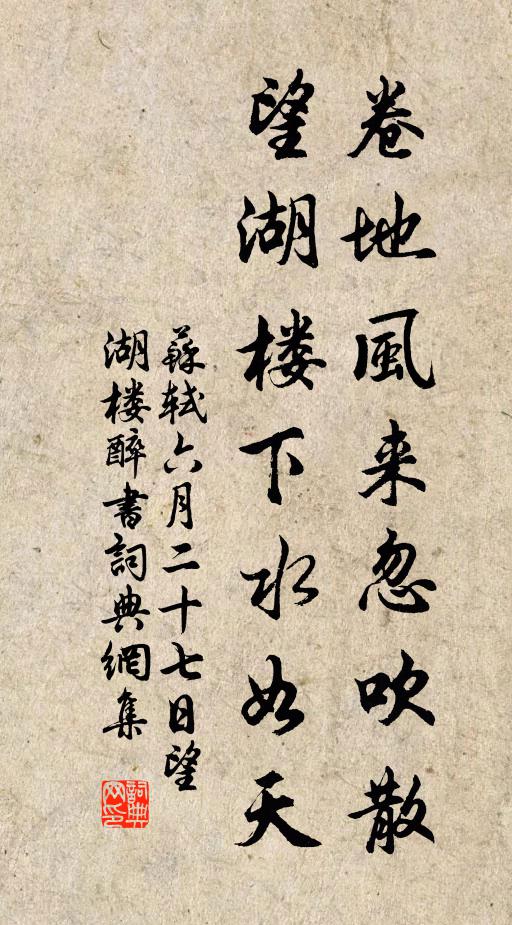 卷地風来忽吹散
望湖楼下水如天
蘇軾六月二十七日望
湖楼醉書詞典網集
詞典
网印